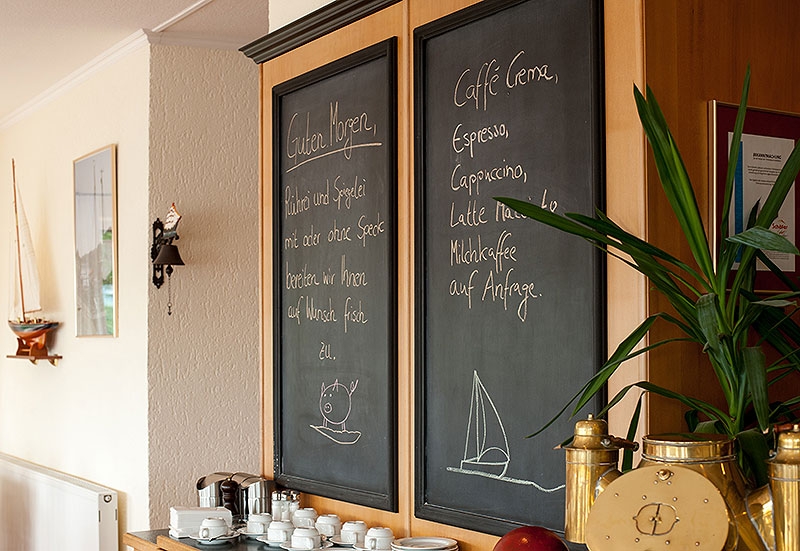 Guten Morgen,
Rührei und Spiegelei
mit oder ohne Speck
bereiten wir Ihnen
auf Wunsch frisch
zu.
Caffé Crema,
Espresso,
Cappuccino,
Latte Macchiato
Milchkaffee
auf Anfrage.